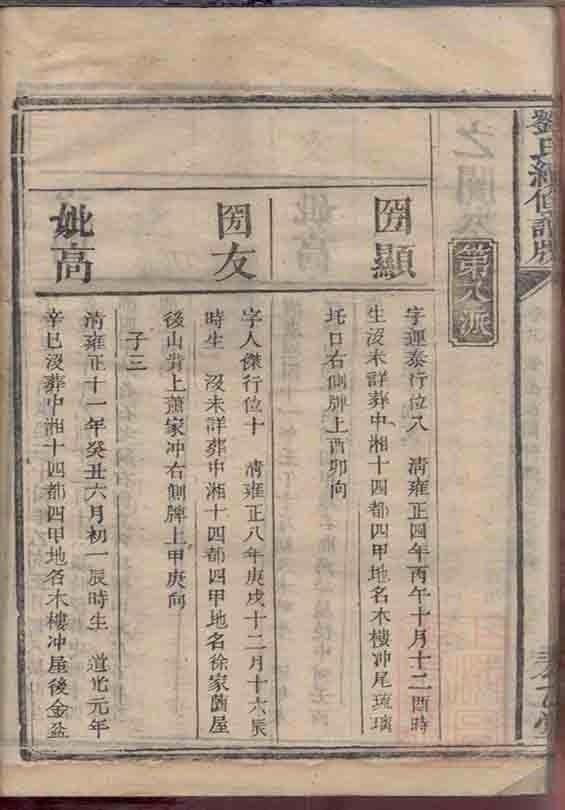 劉氏續修譜牒
之開公
第八派
國顯
字運泰行位八　清雍正四年丙午十月十二酉時
生沒未詳葬中湘十四都四甲地名木樓冲尾琉璃
圫口右側牌上酉卯向
國友
字人傑行位十　清雍正八年庚戌十二月十六辰
時生　沒未詳葬中湘十四都四甲地名徐家薗屋
後山背上蕭家冲右側牌上甲庚向
子三
妣高
清雍正十一年癸丑六月初一辰時生　道光元年
辛巳沒葬中湘十四都四甲地名木樓冲屋後金盆